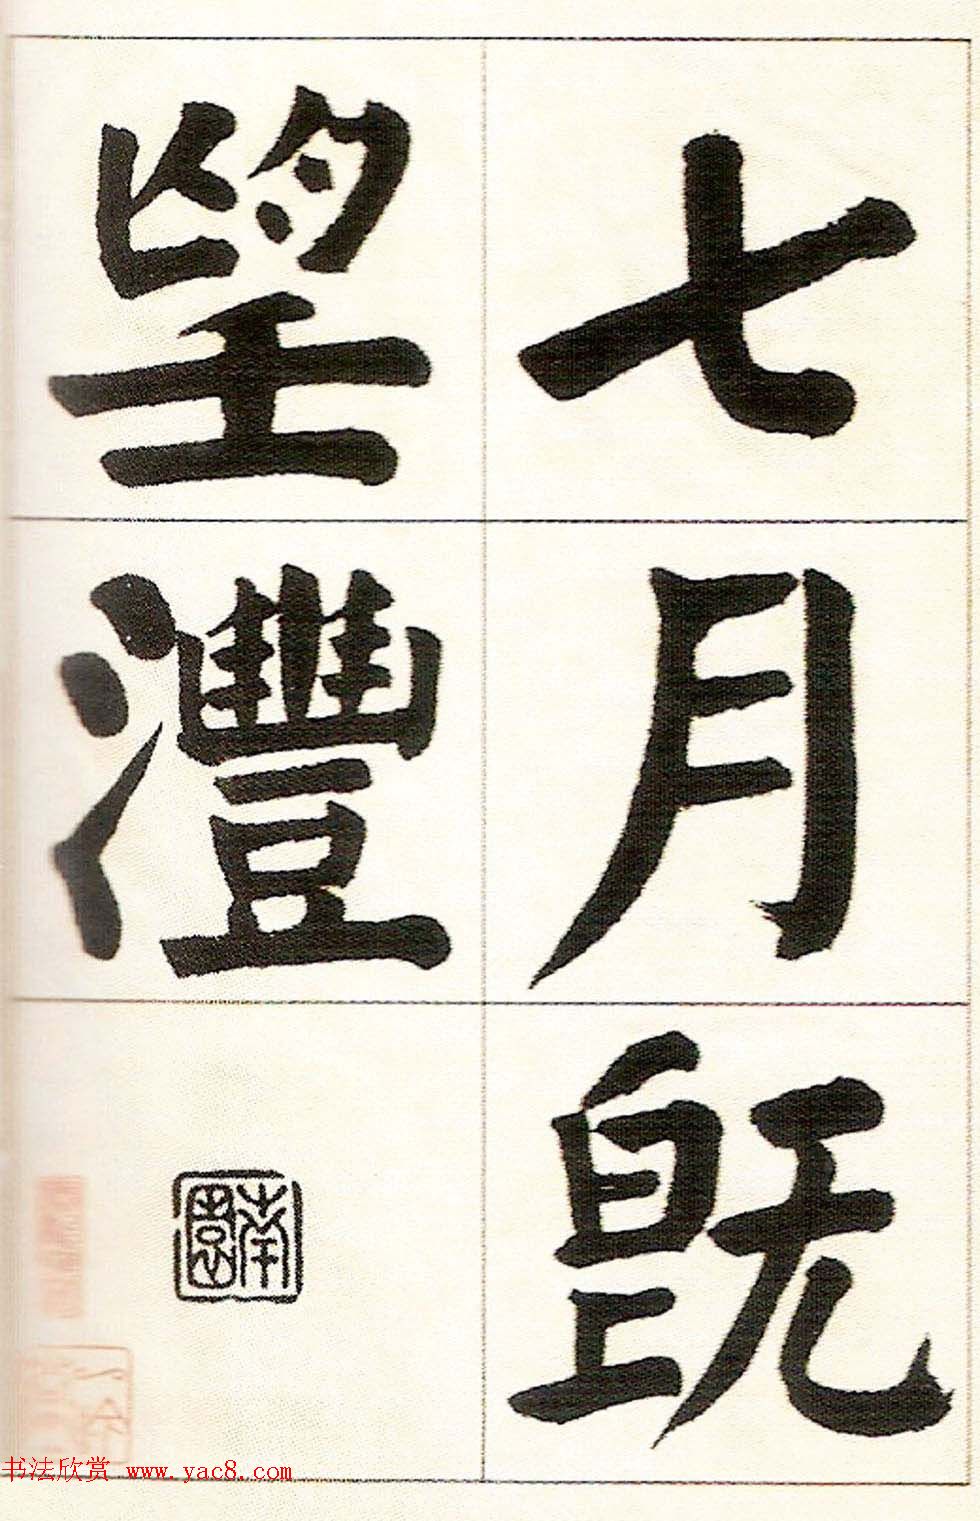 七月既
望灃
南園
书法欣赏 www.yac8.com